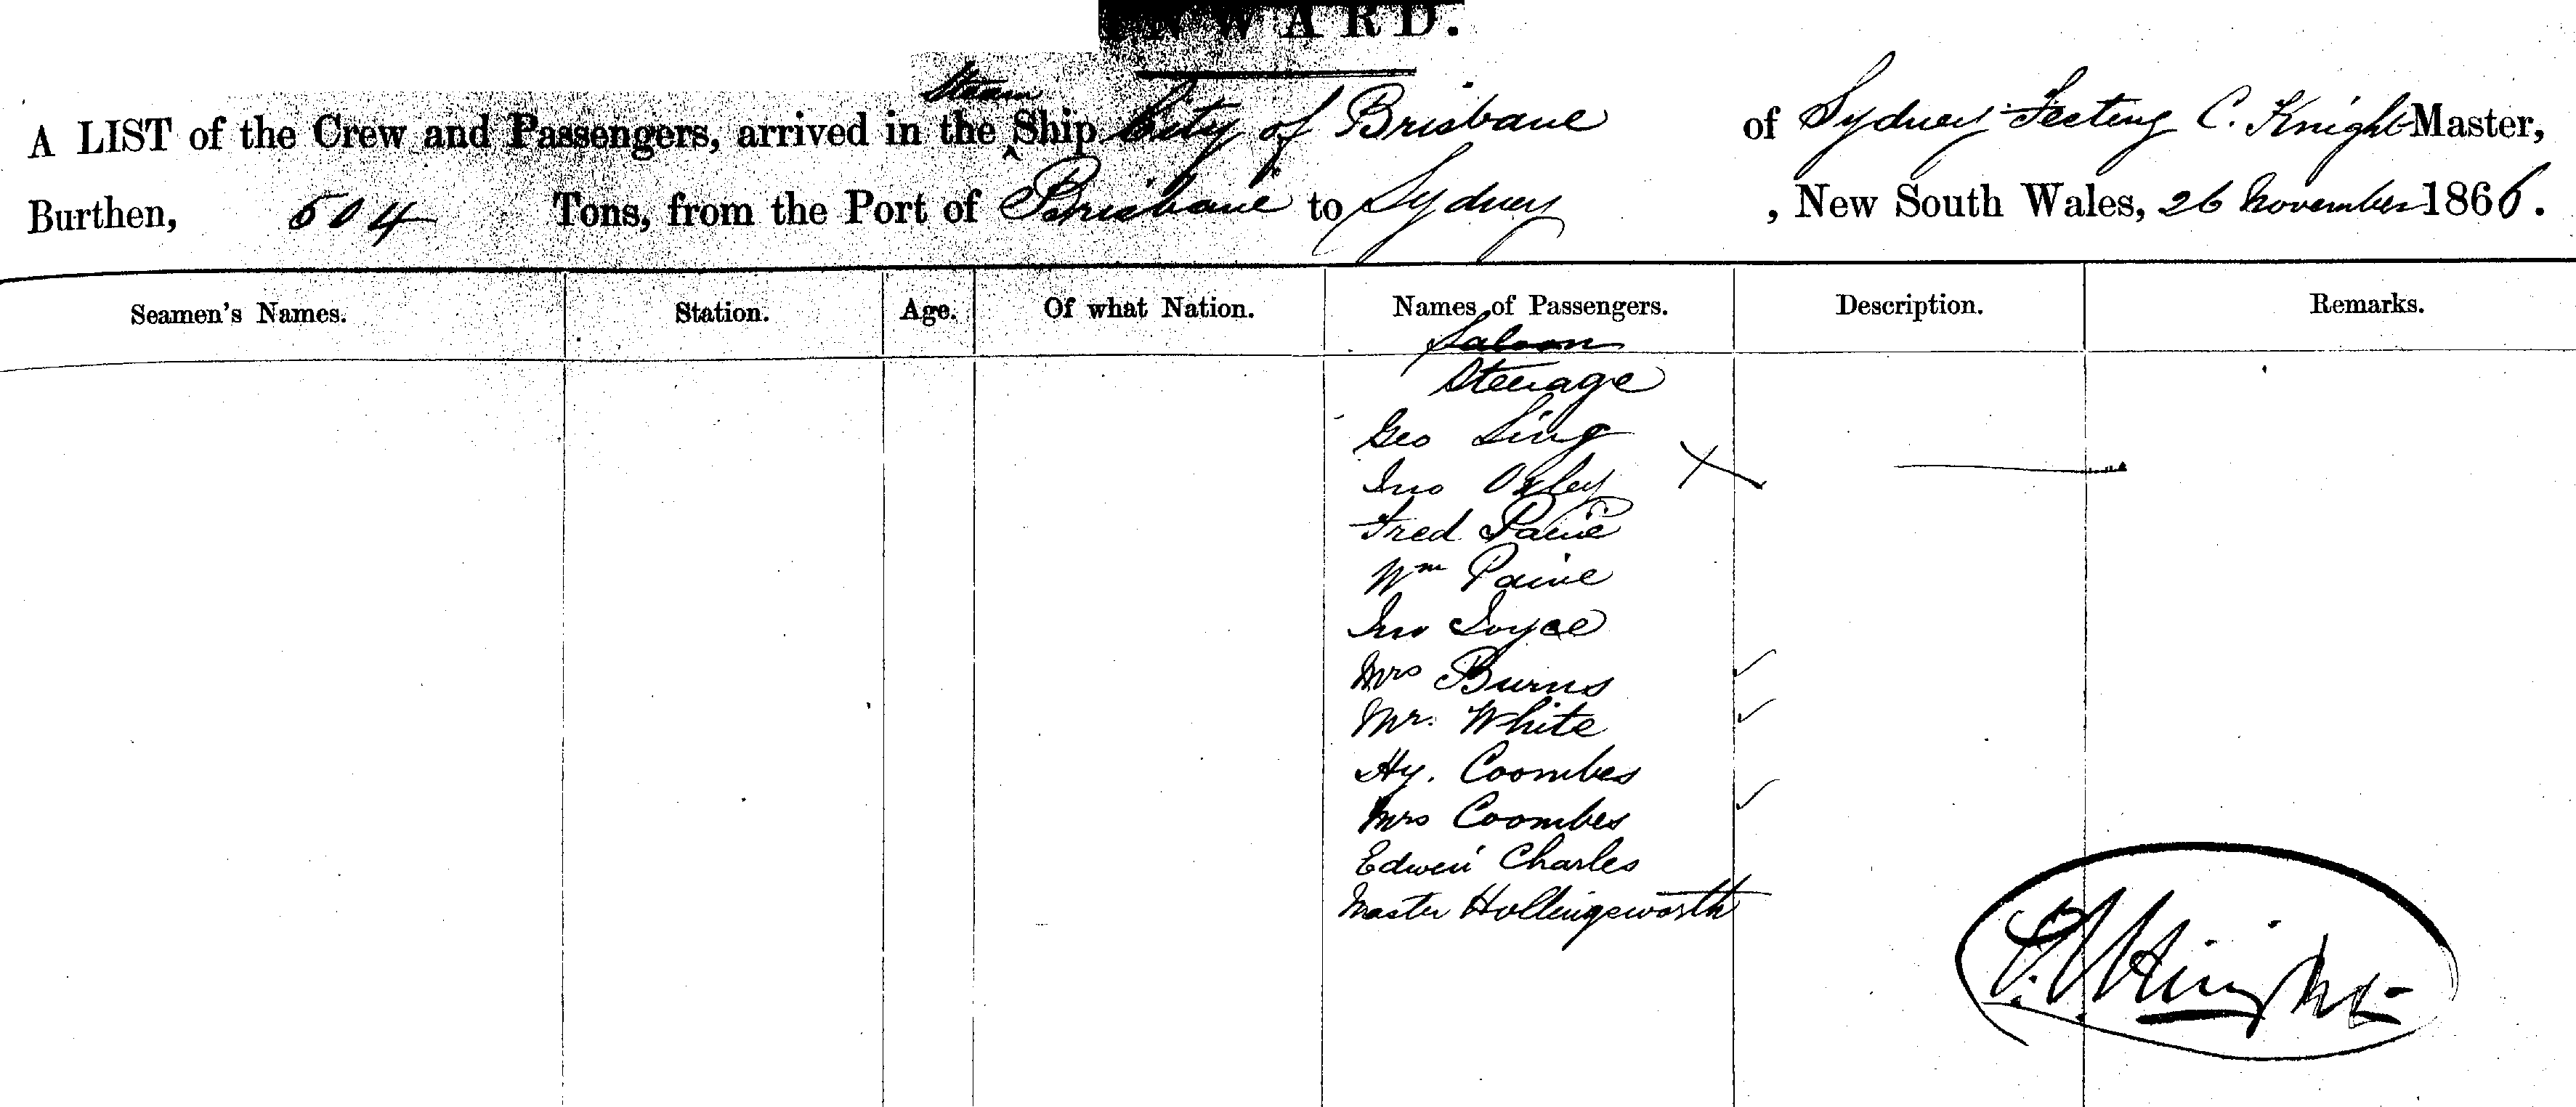 INWARD.
A LIST of the Crew and Passengers, arrived in the Steam Ship City of Brisbane of Sydney Festing C. Knight Master,
Burthen, 504 Tons, from the Port of Brisbane to Sydney, New South Wales, 26 November 1866.
Seamen's Names. Station. Age. Of what Nation. Names of Passengers. Description. Remarks.
Saloon
Steerage
Geo Ling
Jno Oxley
Fred Paine
Wm Paine
Jno Joyce
Mrs Burns
Mr. White
Hy. Coombes
Mrs Coombes
Edwin Charles
Master Hollingsworth
Knight